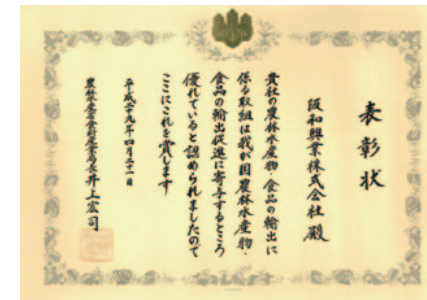 表彰状
阪和興業株式会社殿
貴社の農林水産物・食品の輸出に
係る取組は我が国農林水産物・
食品の輸出促進に寄与するところ
優れていると認められましたので
ここにこれを賞します
平成二十九年四月二十一日
農林水産省食料産業局長井上宏司